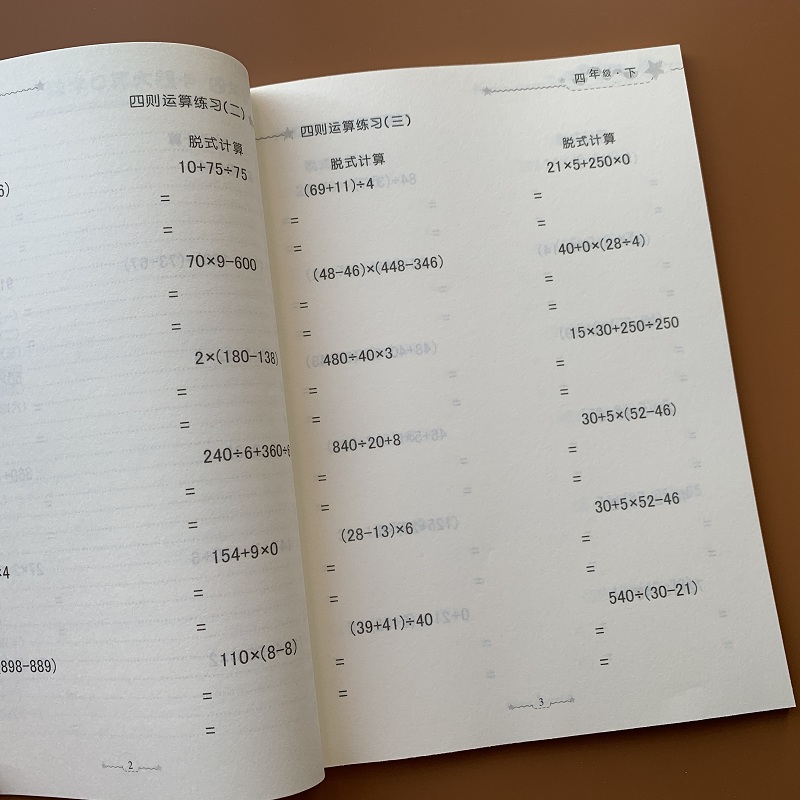 四则运算练习(二)
脱式计算
10+75÷75
=
=
70×9-600
=
=
2×(180-138)
=
=
240÷6+360÷
=
=
154+9×0
=
=
898-889)
110×(8-8)
=
=
2
四年级·下
四则运算练习(三)
脱式计算
(69+11)÷4
=
=
(48-46)×(448-346)
=
=
480÷40×3
=
=
840÷20+8
=
=
(28-13)×6
=
=
(39+41)÷40
=
=
脱式计算
21×5+250×0
=
=
40+0×(28÷4)
=
=
15×30+250÷250
=
=
30+5×(52-46)
=
=
30+5×52-46
=
=
540÷(30-21)
=
=
3